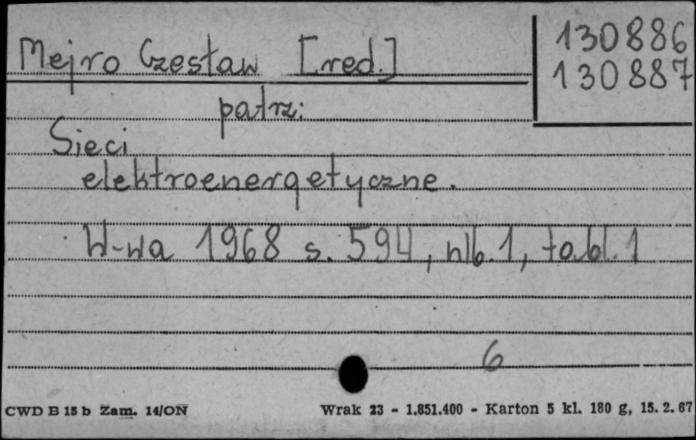 Mejro Czesław [red.]
130886
130887
patrz:
Sieci
elektroenergetyczne.
W-wa 1968 s. 594, nlb. 1, tabl. 1
6
CWD B 15 b Zam. 14/ON
Wrak 23 - 1.851.400 - Karton 5 kl. 180 g, 15. 2. 67